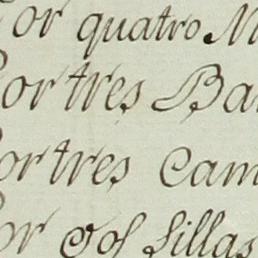 Por quatro M
Por tres Ba
Por tres Cam
Por dos sillas